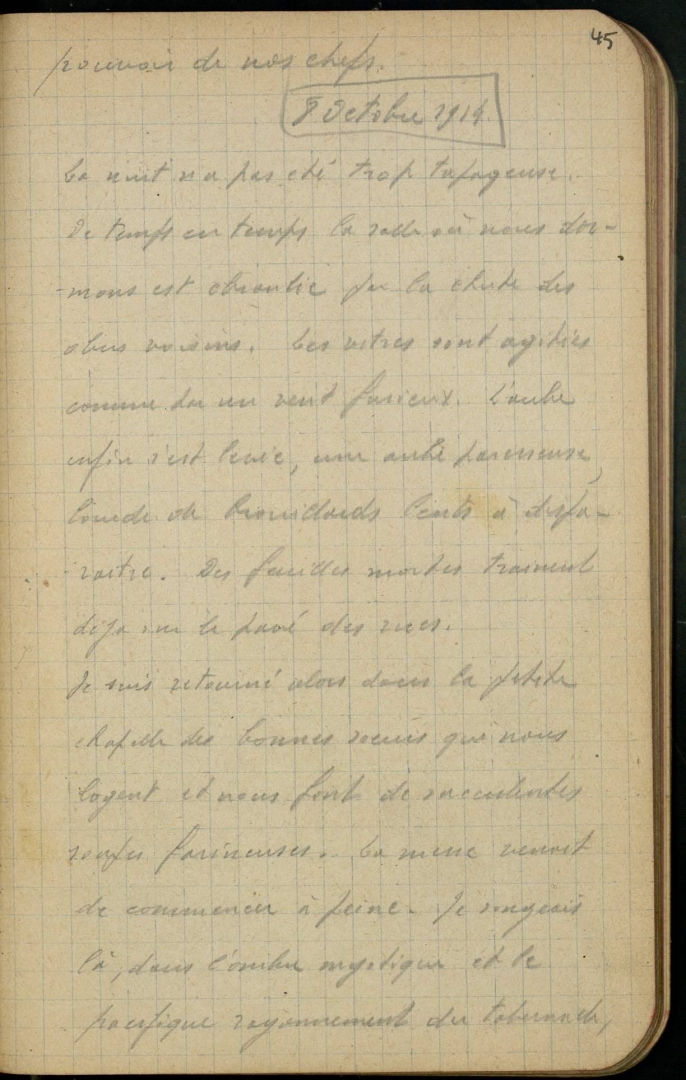 45
pouvoir de nos chefs.
8 Octobre 1914.
La nuit n'a pas été trop tapageuse.
De temps en temps la salle où nous dor-
mons est ébranlée par la chute des
obus voisins. Les vitres sont agitées
comme par un vent furieux. L'aube
enfin s'est levée, une aube paresseuse,
lourde de brouillards lents à dispa-
raitre. Des feuilles mortes trainent
déja sur le pavé des rues.
Je suis retourné alors dans la petite
chapelle des bonnes soeurs qui nous
logent et nous font de succulentes
soupes farineuses. La messe venait
de commencer à peine. Je songeais
là, dans l'ombre mystique et le
pacifique rayonnement du tabernacle,